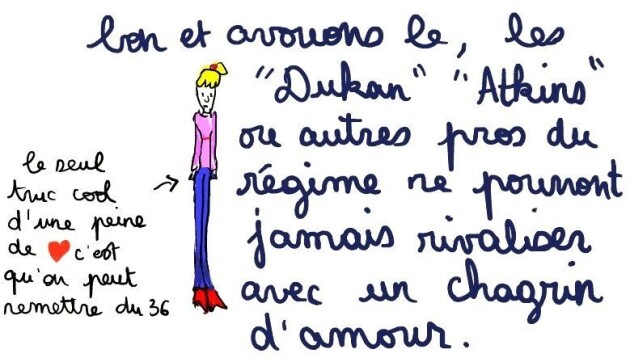 bon et avouons le, les
"Dukan" "Atkins"
ou autres pros du
régime ne pourront
jamais rivaliser
avec un chagrin
d'amour.
le seul
truc cool
d'une peine
de ❤ c'est
qu'on peut
remettre du 36